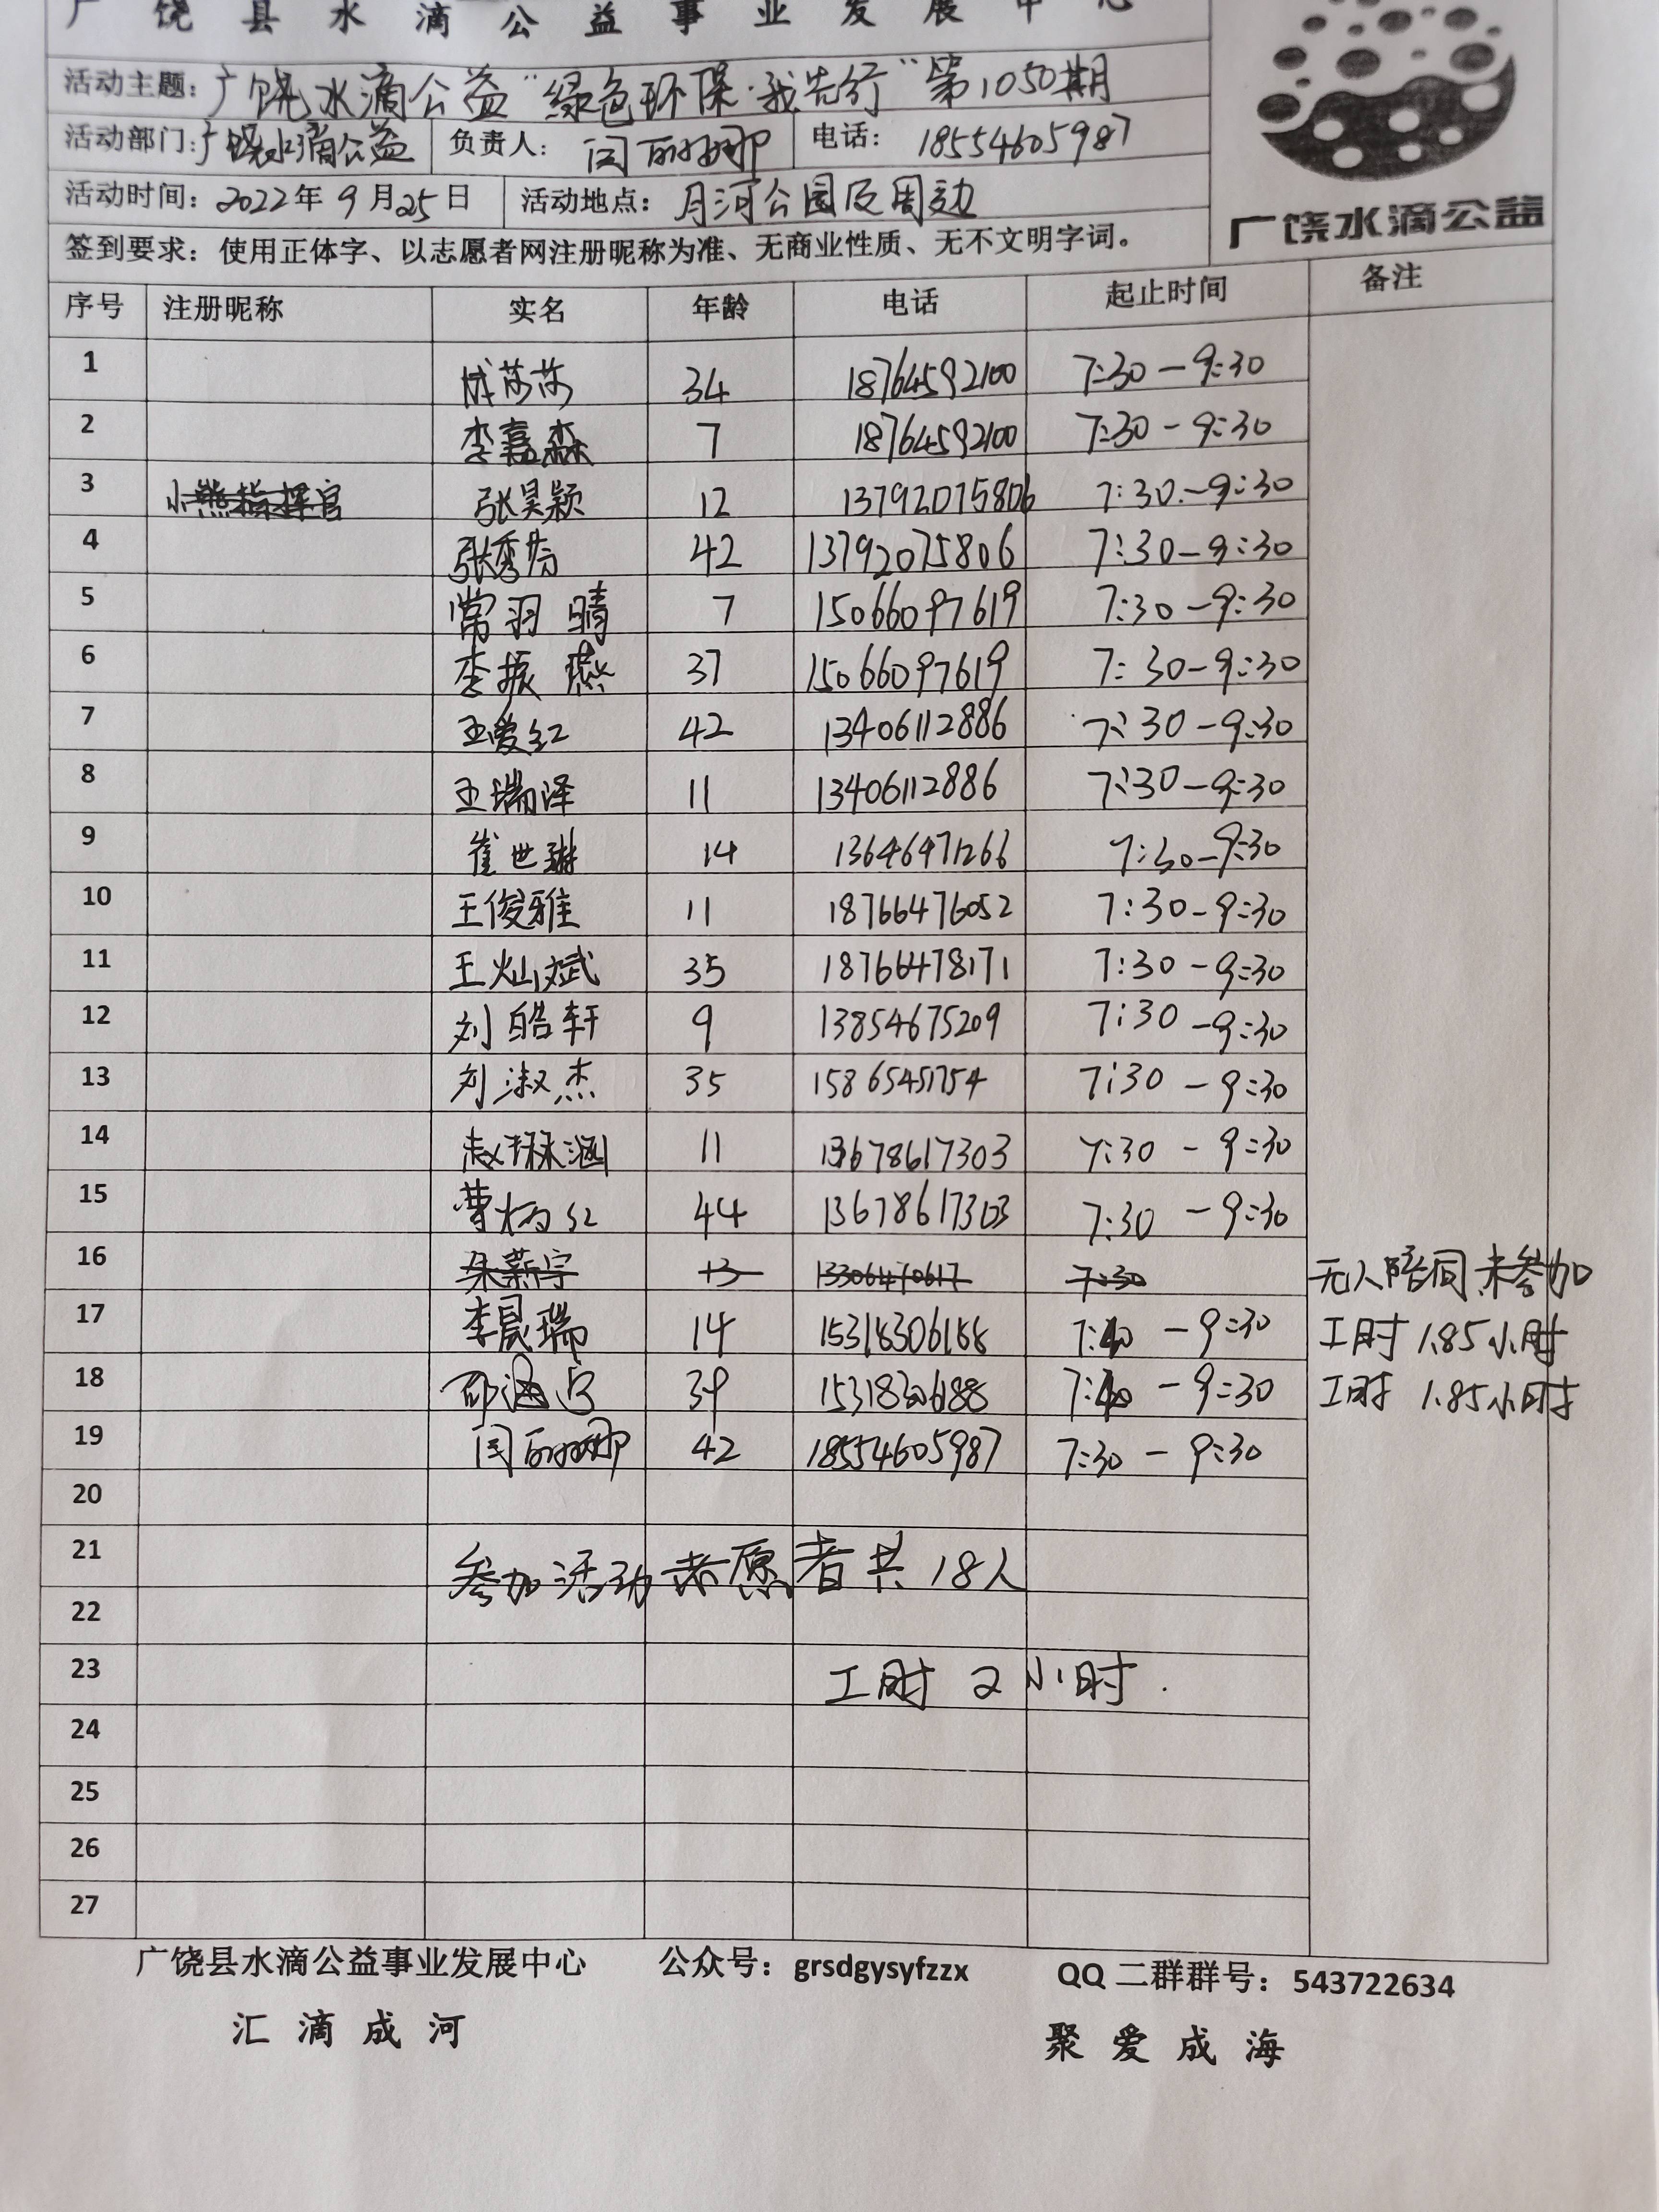 广饶县水滴公益事业发展中心
活动主题：广饶水滴公益“绿色环保·我先行”第1050期
活动部门：广饶水滴公益 负责人：闫丽娜 电话：18554605987
活动时间：2022年9月25日 活动地点：月河公园及周边
广饶水滴公益
签到要求：使用正体字、以志愿者网注册昵称为准、无商业性质、无不文明字词。
序号 注册昵称 实名 年龄 电话 起止时间 备注
1 成莎莎 34 18764592100 7:30-9:30
2 李嘉森 7 18764592100 7:30-9:30
3 小熊指挥官 张昊颖 12 13792075806 7:30-9:30
4 张秀芬 42 13792075806 7:30-9:30
5 常羽晴 7 15066097619 7:30-9:30
6 李振燕 37 15066097619 7:30-9:30
7 王爱红 42 13406112886 7:30-9:30
8 王瑞泽 11 13406112886 7:30-9:30
9 崔世琳 14 13646471266 7:30-9:30
10 王俊雅 11 18766476052 7:30-9:30
11 王灿斌 35 18766478171 7:30-9:30
12 刘皓轩 9 13854675209 7:30-9:30
13 刘淑杰 35 15865451754 7:30-9:30
14 赵琳涵 11 13678617303 7:30-9:30
15 曹炳红 44 13678617303 7:30-9:30
16 朱薪宇 13 13306470617 7:30 无人陪同未参加
17 李晨瑞 14 15318306188 7:40-9:30 工时1.85小时
18 39 1531830688 7:40-9:30 工时1.85小时
19 闫丽娜 42 18554605987 7:30-9:30
20
21 参加活动志愿者共18人
22
23 工时2小时.
24
25
26
27
广饶县水滴公益事业发展中心 公众号：grsdgysyfzzx QQ二群群号：543722634
汇滴成河 聚爱成海